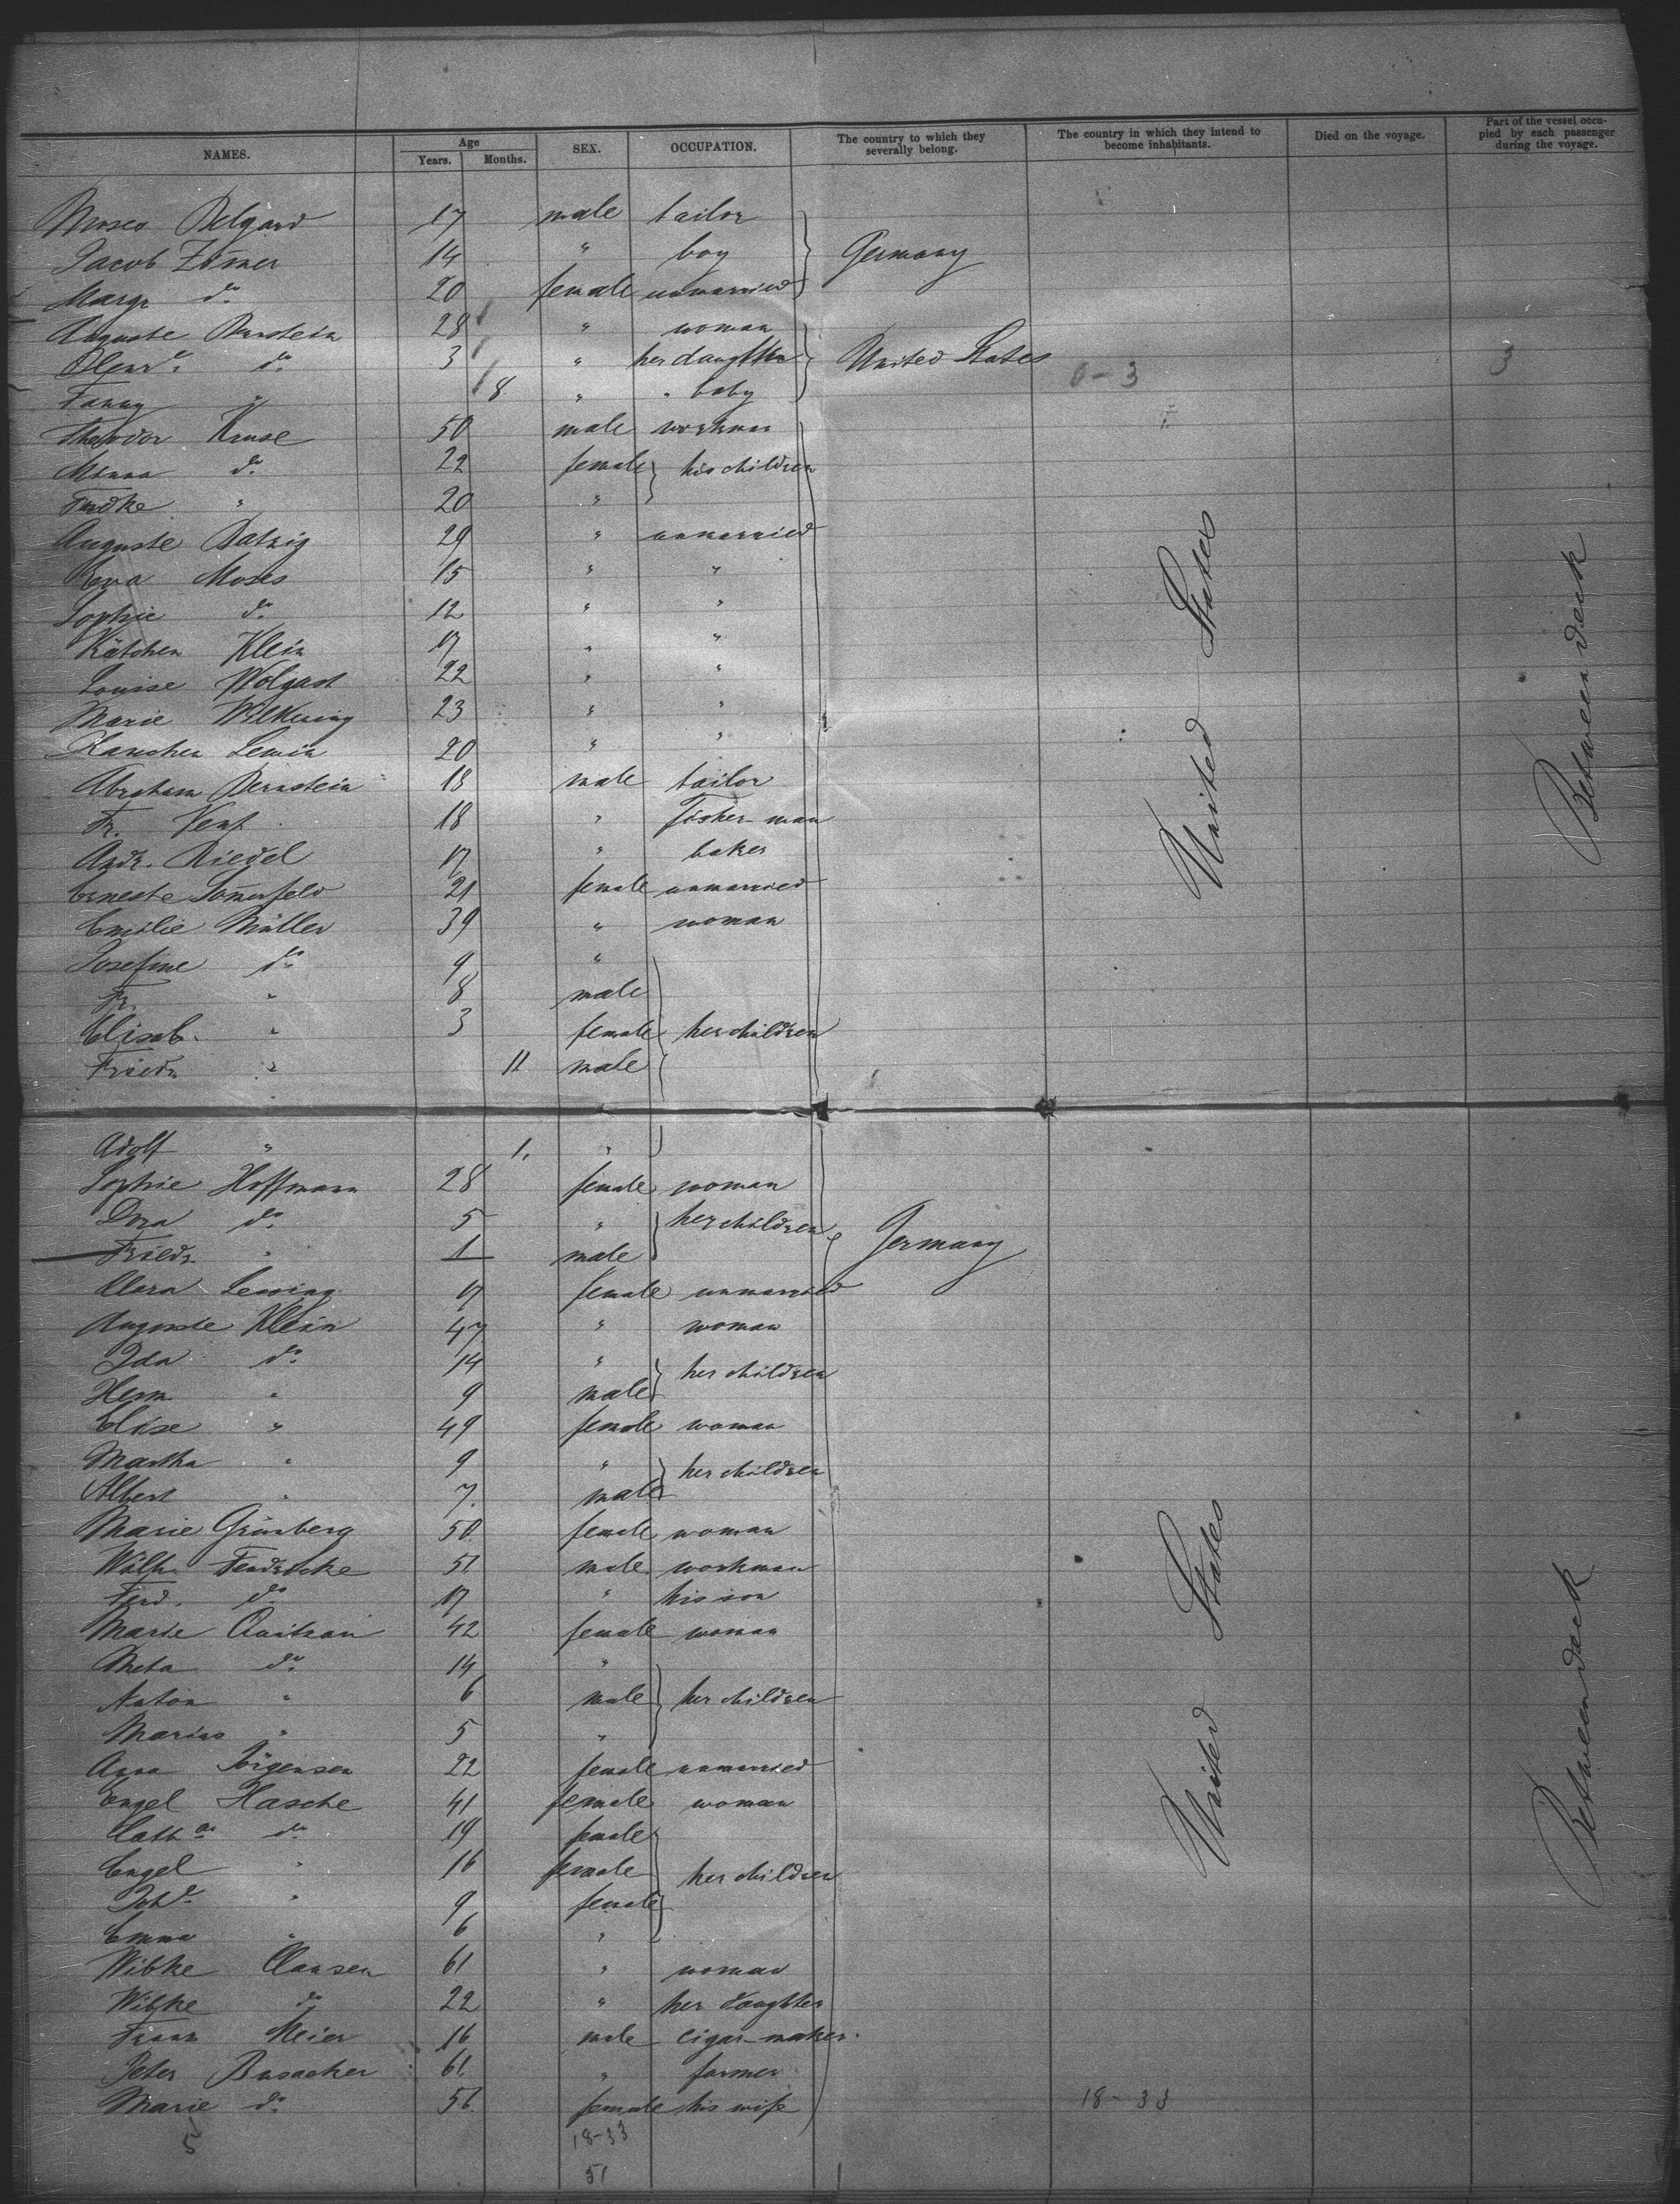 NAMES. Age SEX. OCCUPATION. The country to which they severally belong. The country in which they intend to become inhabitants. Died on the voyage. Part of the vessel occupied by each passenger during the voyage.
Years. Months.
Moses Belgard 17 male tailor
Jacob Zömer 14 " boy Germany
Margr do 20 female unmarried
Auguste 28 " woman
Henrte do 3 " her daughter United States 0-3 3
Fanny " 8 " " baby
Theodor Kruse 50 male workman
Minna do 22 female his children
" 20 "
Auguste Batzig 29 " unmarried
Eva Moses 15 " "
Sophie do 12 " "
Kätchen Klein 17 " "
Louise Wolgast 22 " "
Marie Wilkening 23 " "
Hanchen Lewin 20 " "
Abraham Bernstein 18 male tailor
Fr. 18 " Fisher-man
Andr. Riedel 17 " baker
Erneste Somerfeld 21 female unmarried
Emilie Müller 39 " woman
Josefine do 9 "
Fr. " 8 male
Elisab. " 3 female her children
Friedr " 11 male
United States
Between deck
Adolf " 1. "
Sophie Hoffmann 28 female woman
Dora do 5 " her children
Friedr. " 1 male Germany
Clara 17 female unmarried
Auguste Klein 47 " woman
Ida do 14 " her children
Herm " 9 male
Elise " 49 female woman
Martha " 9 " her children
Albert " 7. male
Marie Grünberg 50 female woman
Wilh. 51 male workman
Ferd. do 17 " his son
Marie 42 female woman
Meta do 14 "
Anton " 6 male her children
Marius " 5 "
Anna Jörgensen 22 female unmarried
Engel Hasche 41 female woman
Catha do 19 female
Engel " 16 female her children
" 9 female
Emma " 6 "
Wibke Clausen 61 " woman
Wibke do 22 " her daughter
Franz Meier 16 male cigar-maker.
Peter Busacker 61. " farmer
Marie do 56. female his wife 18-33
United States
Between deck
5 18-33
51